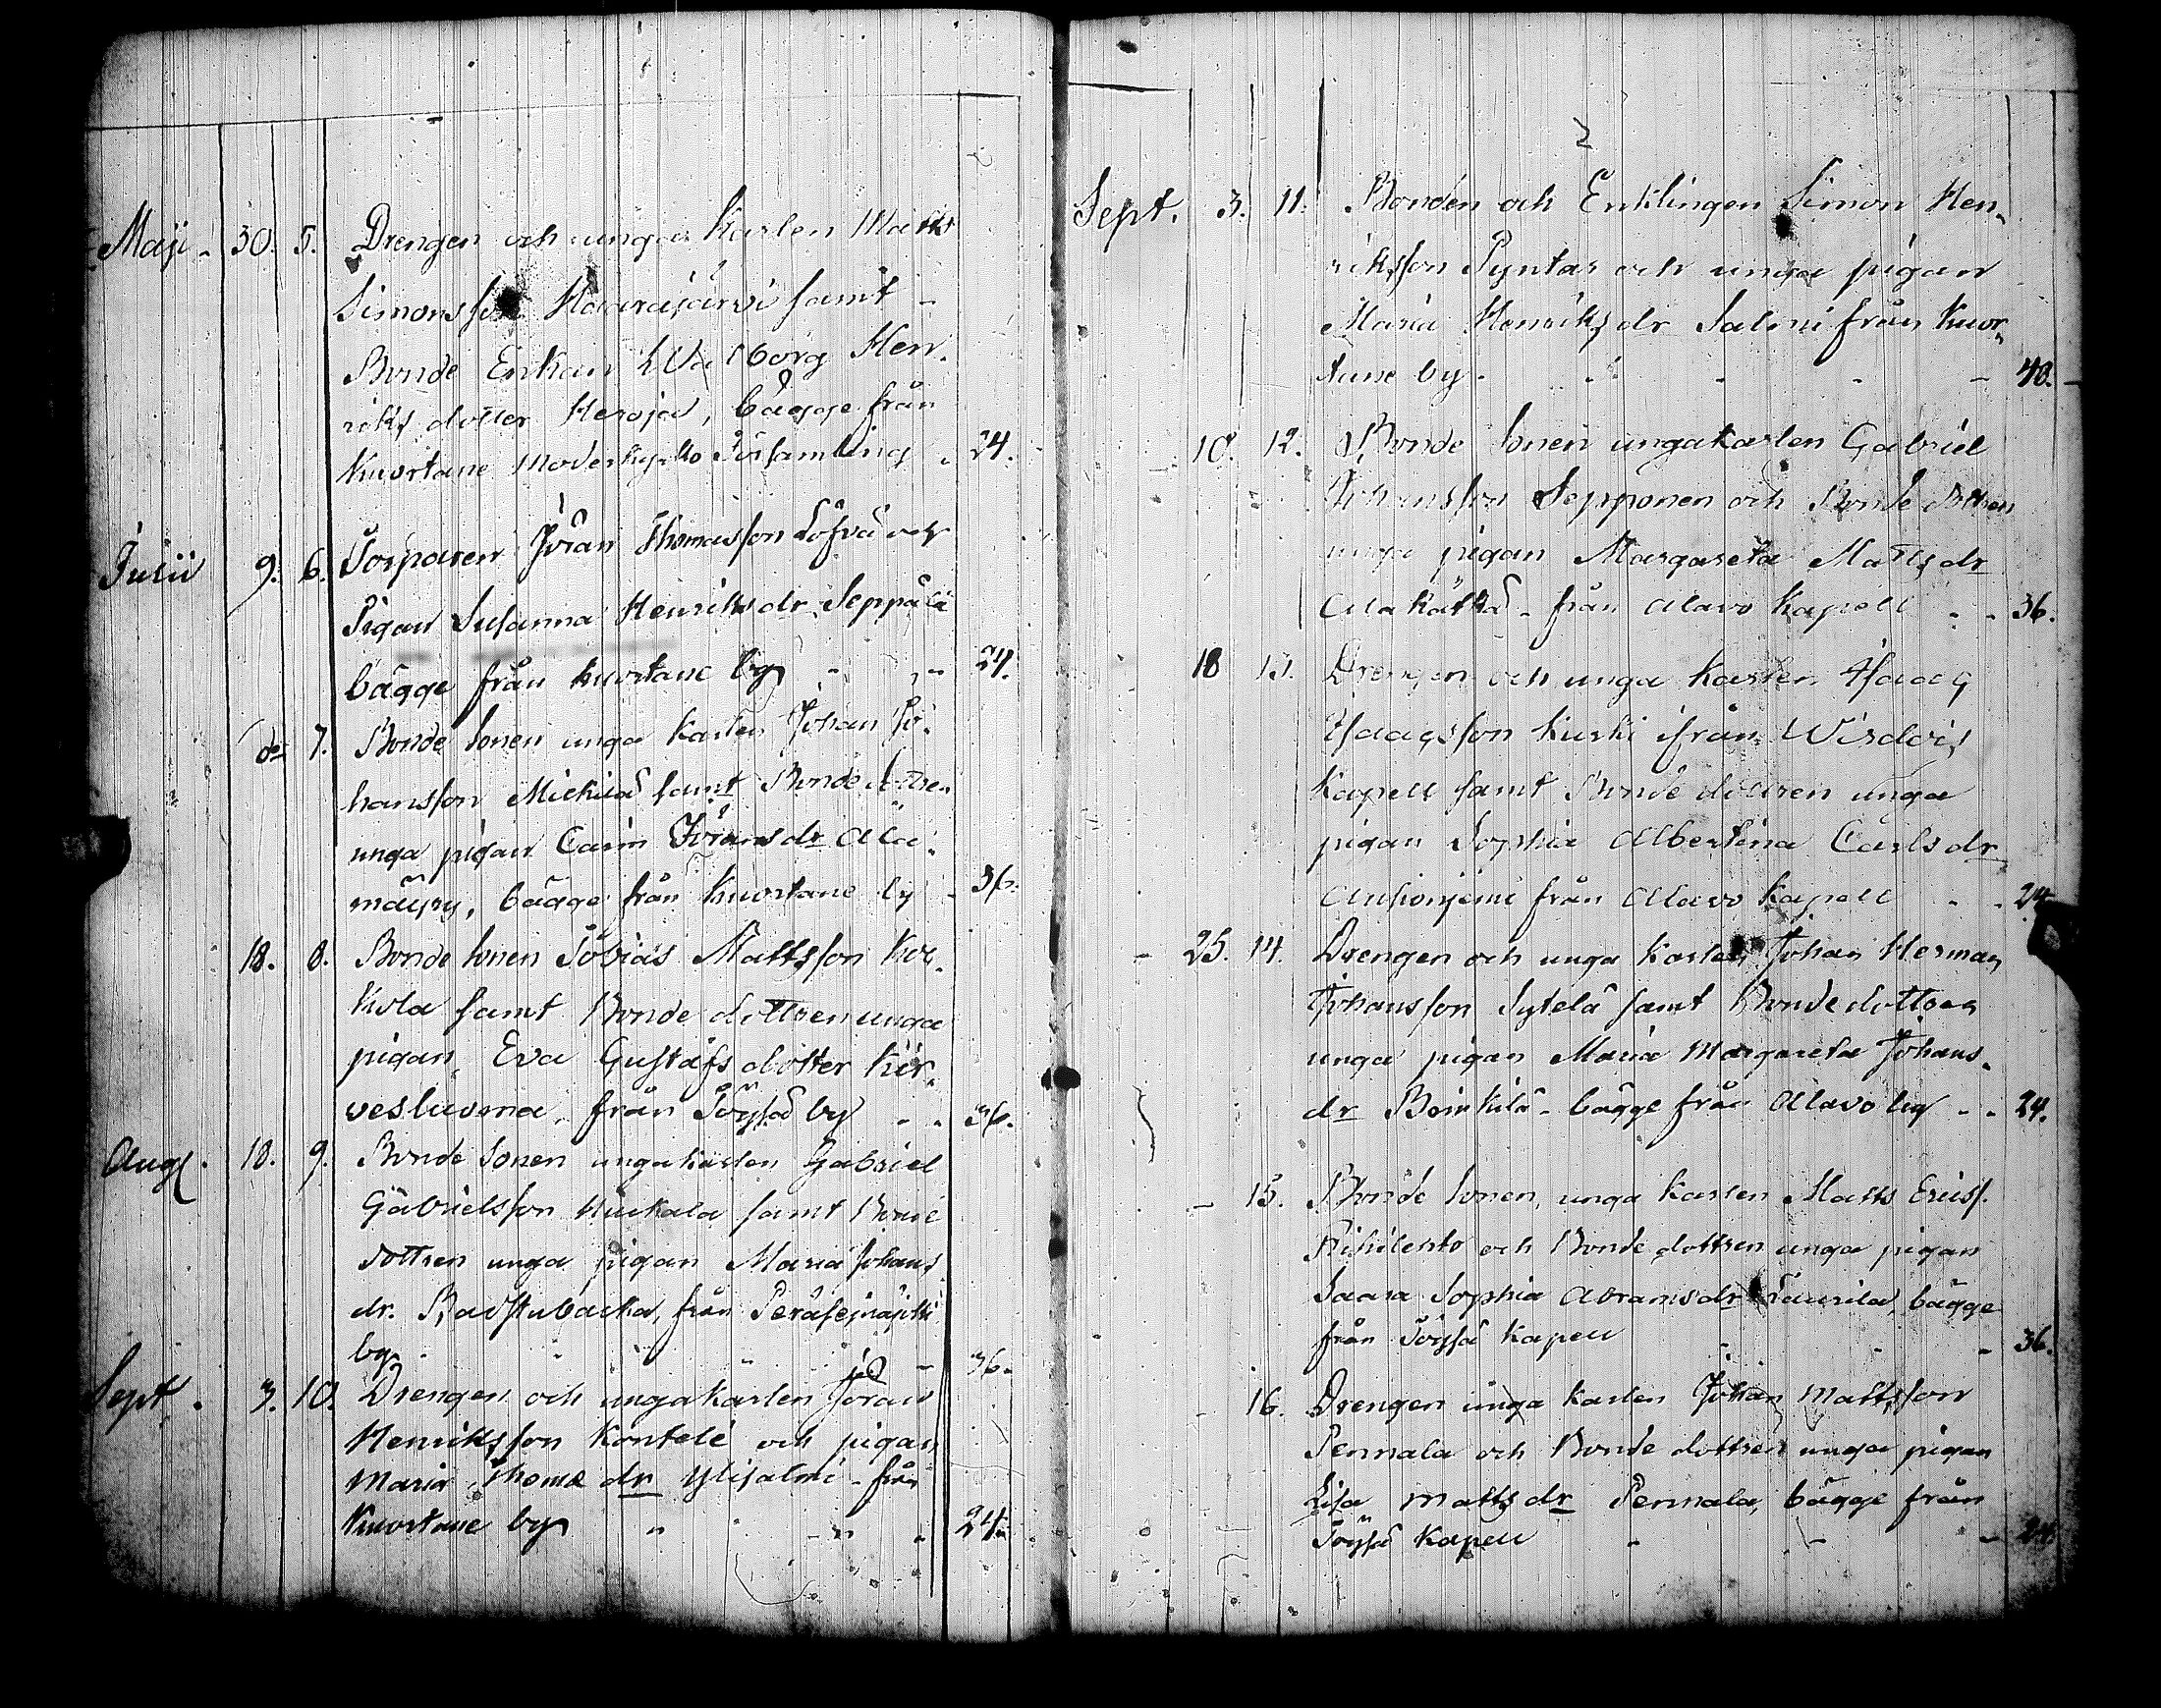 Maji - 30. 5. Drengen och unga Karlen Matts
Simonsson Haarajärvi samt -
Bonde Enkan Walborg Hen-
riks dotter Heroja, bägge från
Kuortane Moderkyrko Församling - 24.
Junii 9. 6. Torparen Jöran Thomasson Löfvä och
Pigan Susanna Henriksdr Seppälä
bägge från Kuortane by - - 24.
do 7. Bonde Sonen unga Karlen Johan Jo-
hansson Mickilä samt Bonde dottren
unga pigan Carin Jöransdr Ala-
mäyry, bägge från Kuortane by - 36.
18. 8. Bonde Sonen Tobias Mattsson Kor-
kola samt Bonde dottren unga
pigan Eva Gustafs dotter Kir-
vesluoma, från Töysä by - - 36.
Aug. 18. 9. Bonde Sonen unga karlen Gabriel
Gabrielsson samt Bonde
dottren unga pigan Maria Johans
dr. Badstubacka, från Peräseinäjoki
by - - - 36.
Sept. 3. 10. Drengen och unga Karlen Jöran
Henriksson Kontele och pigan
Maria Thomæ dr Ylisalmi - från
Kuortane by " " - 24.
2
Sept. 3. 11. Bonden och Enklingen Simon Hen-
riksson Pyntär och unga pigan
Maria Henriksdr Salmi från Kuor-
tane by - - - - - 40.
- 10. 12. Bonde Sonen unga karlen Gabriel
Johansson Sepponen och Bonde dottren
unga pigan Margareta Matts dr
Alakätkä - från Alavo Kapell - - 36.
18 13. Drengen och unga Karlen Isaac
Isaacsson Kurki från Wirdois
Kapell samt Bonde dottren unga
pigan Sophia Albertina Carls dr
från Alavo Kapell - - 24.
- 25. 14. Drengen och unga Karlen Johan Herman
Johansson Sytelä samt Bonde dottren
unga pigan Maria Margareta Johans-
dr - bägge från Alavo by - - 24.
- 15. Bonde Sonen, unga Karlen Matts Ericss.
och Bonde dottren unga pigan
Saara Sophia Abramsdr Taurila, bägge
från Töysä Kapell - - 36.
- 16. Drengen unga karlen Johan Mattsson
Pennala och Bonde dottren unga pigan
Lisa Matts dr Pennala, bägge från
Töysä Kapell - - - 24.